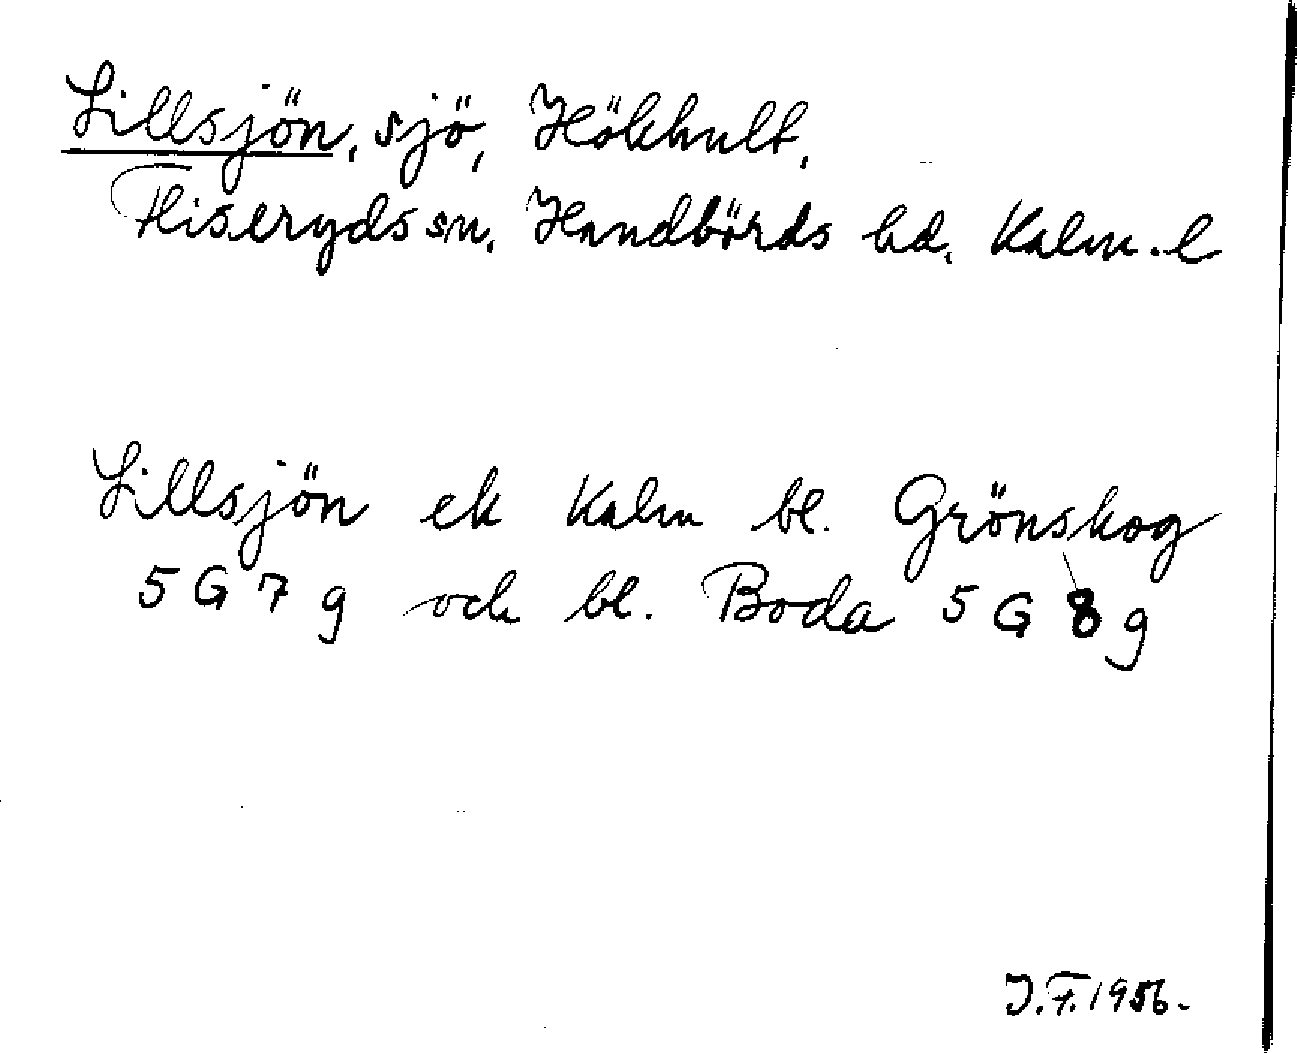 Lillsjön, sjö, Hökhult,
Fliseryds sn, Handbörds hd, Kalm. l
Lillsjön ek Kalm bl. Grönskog
5 G 7 g och bl. Boda 5 G 8 g
J.F. 1956.